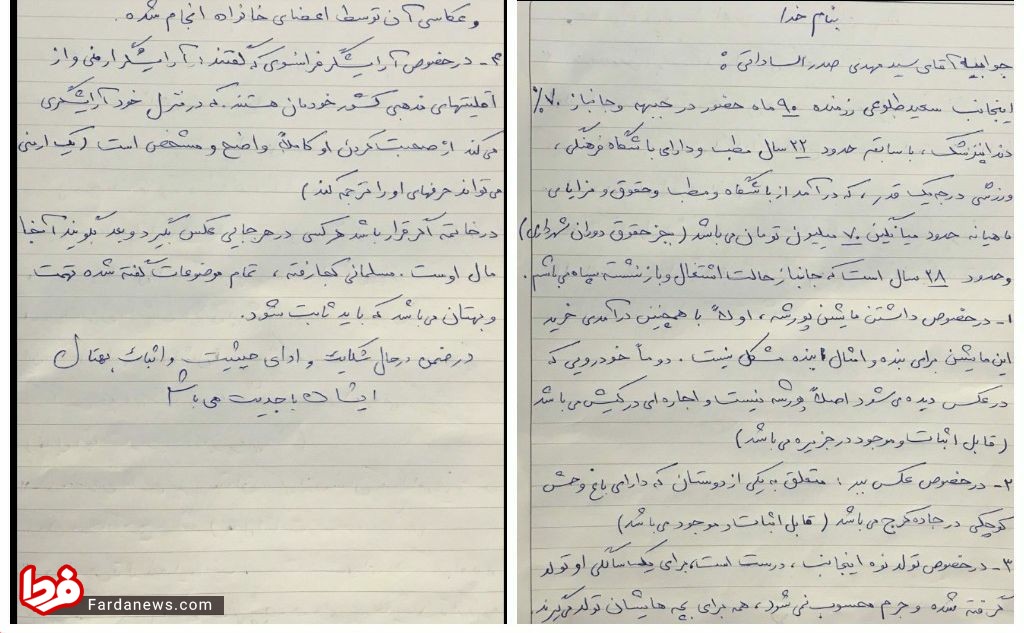 بنام خدا
جوابیه آقای سید مهدی صدرالساداتی :
اینجانب سعید طلوعی رزمنده ۹۰ ماه حضور در جبهه و جانباز ۷۰٪
دندانپزشک، با سابقه حدود ۲۲ سال مطب و دارای باشگاه فرهنگی،
ورزشی درجه یک قدر، که درآمد از باشگاه و مطب و حقوق و مزایای
ماهیانه حدود میانگین ۷۰ میلیون تومان می باشد (بجز حقوق دوران شهرداری)
و حدود ۲۸ سال است که جانباز حالت اشتغال و بازنشسته سپاه می باشم.
۱- در خصوص داشتن ماشین پورشه، اولاً با همچنین درآمدی خرید
این ماشین برای بنده و امثال بنده مشکل نیست. دوماً خودرویی که
در عکس دیده می شود اصلاً پورشه نیست و اجاره ای در کیش می باشد
(قابل اثبات و موجود در جزیره می باشد)
۲- در خصوص عکس ببر : متعلق به یکی از دوستان که دارای باغ وحش
کوچکی در جاده کرج می باشد (قابل اثبات و موجود می باشد)
۳- در خصوص تولد نوه اینجانب، درست است، برای یکسالگی او تولد
گرفته شده و جرم محسوب نمی شود، همه برای بچه هایشان تولد می گیرند
و عکاسی آن توسط اعضای خانواده انجام شده.
۴- در خصوص آرایشگر فرانسوی که گفتند : آرایشگر ارمنی و از
اقلیتهای مذهبی کشور خودمان هستند که در منزل خود آرایشگری
می کند از صحبت کردن او کاملاً واضح و مشخص است (یک ارمنی
می تواند حرفهای او را ترجمه کند)
در خاتمه اگر قرار باشد هر کسی در هر جایی عکس بگیرد و بعد بگویند آنجا
مال اوست. مسلمانی کجا رفته، تمام موضوعات گفته شده تهمت
و بهتان می باشد که باید ثابت شود.
در ضمن در حال شکایت و اعاده حیثیت و اثبات بهتان
ایشان با جدیت می باشم
فردا
Fardanews.com